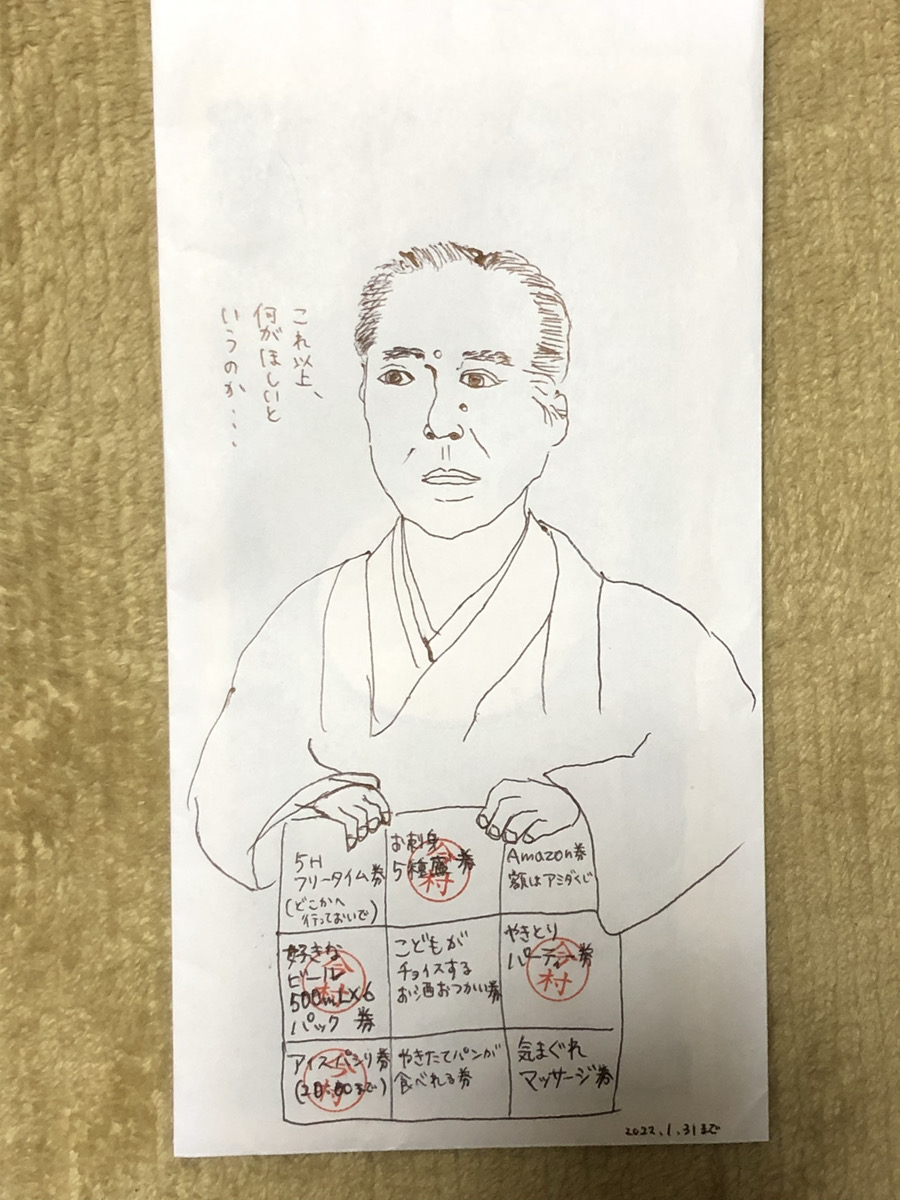 これ以上、
何がほしいと
いうのか・・・
5H
フリータイム券
(どこかへ
行っておいで)
お刺身
5種盛券
今村
Amazon券
額はアミダくじ
好きな
ビール
500mL×6
パック 券
今村
こどもが
チョイスする
お酒おつかい券
やきとり
パーティー券
今村
アイスパシリ券
(20:00まで)
今村
やきたてパンが
食べれる券
気まぐれ
マッサージ券
2022.1.31まで